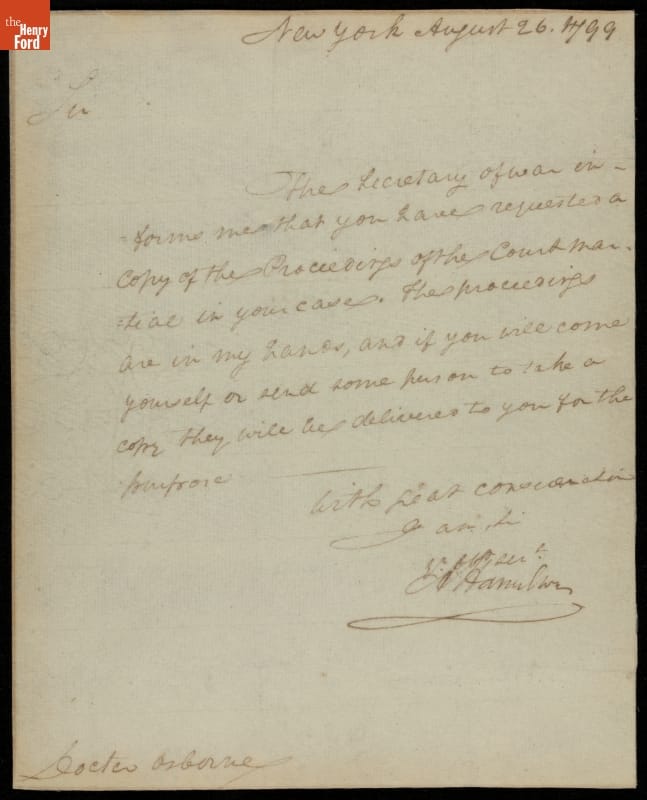 the
Henry
Ford
New York August 26. 1799
Sir
The Secretary of war in-
=forms me that you have requested a
copy of the Proceedings of the Court mar-
=tial in your case. The proceedings
are in my hands, and if you will come
yourself or send some person to take a
copy they will be delivered to you for the
purpose
With great consideration
I am Sir
Yr. obt ser.t
A Hamilton
Docter Osborne